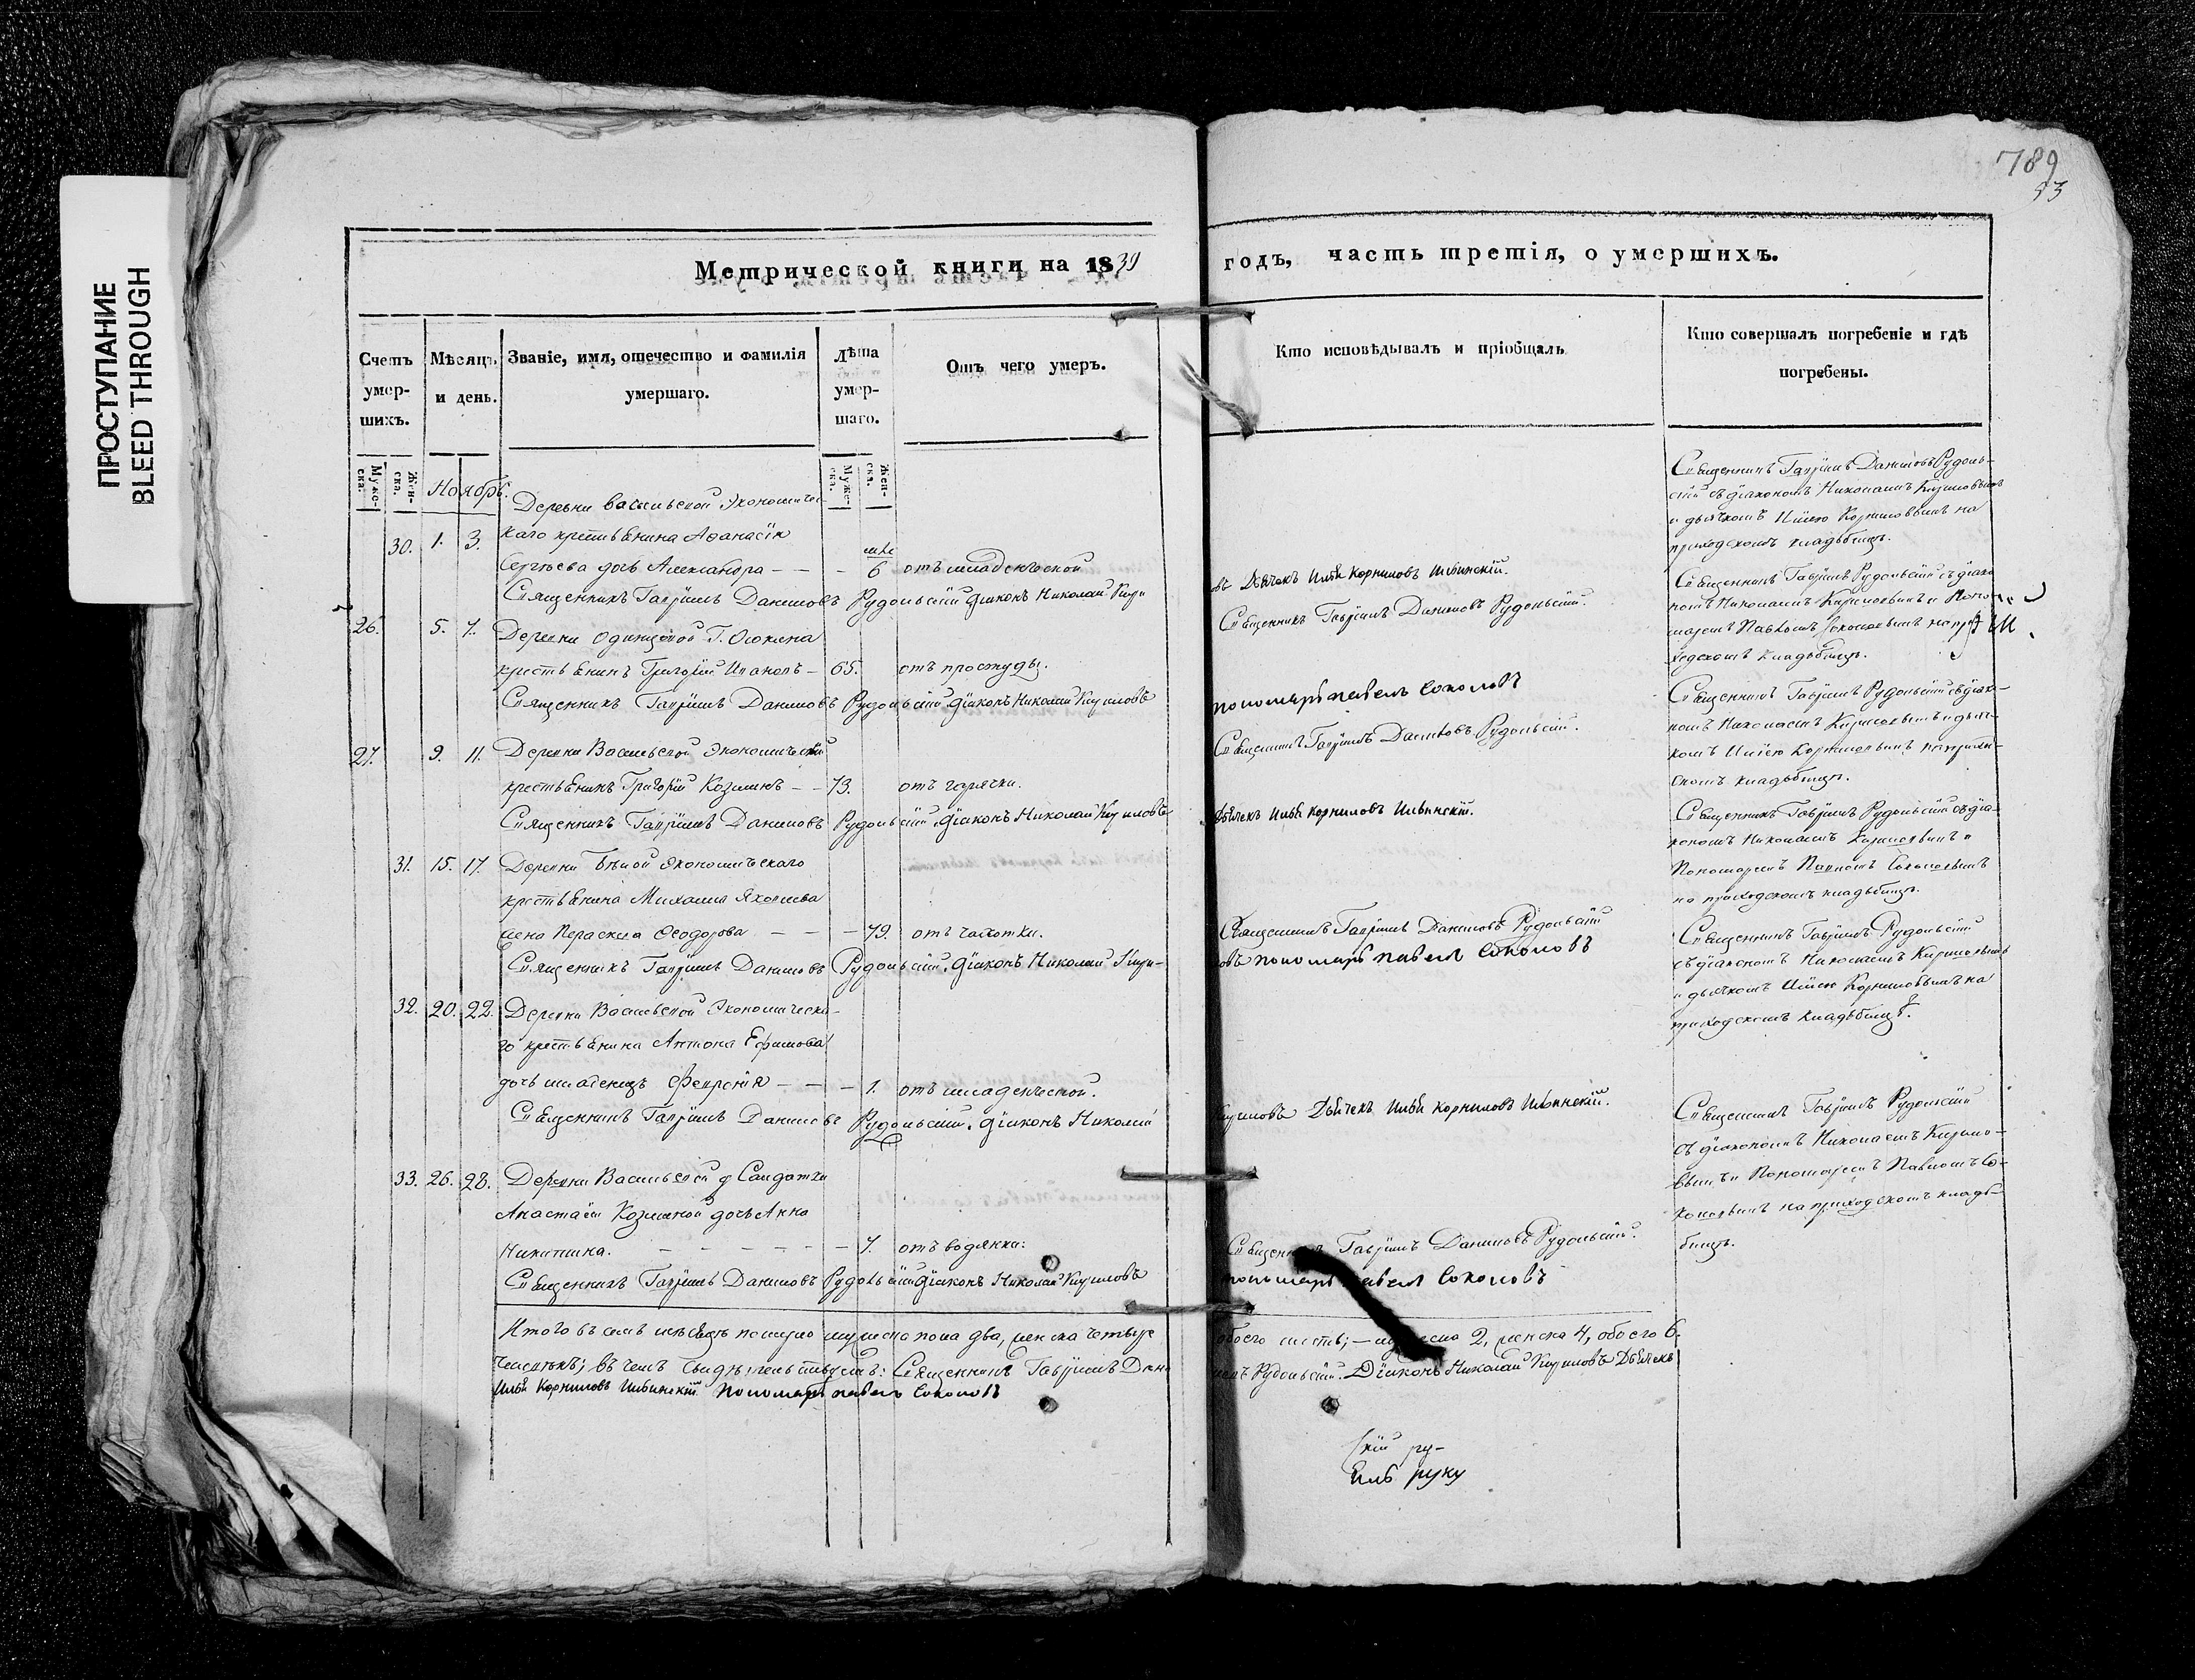 ПРОСТУПАНИЕ
BLEED THROUGH
789
53
Метрической книги на 1839
годъ, часть третія, о умершихъ.
Счетъ умер-шихъ.
Мѣсяцъ и день.
Званіе, имя, отечество и фамилія умершаго.
Лѣта умер-шаго.
Отъ чего умеръ.
Кто исповѣдывалъ и пріобщалъ
Кто совершалъ погребеніе и гдѣ погребены.
Мужс-ска.
Жен-ска.
Мужс-ска.
Жен-ска.
Ноябрь.
Деревни Васильевской Экономичес-
30. 1. 3. каго крестьянина Аѳанасія
Сергѣева дочь Александра — — — 6 отъ младенческой
Священникъ Гавріилъ Даниловъ Рудольскій Діаконъ Николай Кири
въ Дьячекъ Илья Корниловъ Ильинскій.
Священникъ Гавріилъ Даниловъ Рудоль-
скій съ діакономъ Николаемъ Кириловымъ
и дьячкомъ Ильею Корниловымъ на
приходскомъ кладбищѣ.
26. 5. 7. Деревни Одинцовой Г.
крестьянинъ Григорій Ивановъ — 65. отъ простуды.
Священникъ Гавріилъ Даниловъ Рудольскій Діаконъ Николай Кириловъ
Священникъ Гавріилъ Даниловъ Рудольскій.
пономарь Павелъ Соколовъ
Священникъ Гавріилъ Рудольскій съ діако
номъ Николаемъ Кириловымъ и Поно
маремъ Павломъ Соколовымъ на при
ходскомъ кладбищѣ.
27. 9. 11. Деревни Васильевской Экономическій
крестьянинъ Григорій Козминъ — — 73. отъ горячки.
Священникъ Гавріилъ Даниловъ Рудольскій Діаконъ Николай Кириловъ
Священникъ Гавріилъ Даниловъ Рудольскій.
Дьячекъ Илья Корниловъ Ильинскій.
Священникъ Гавріилъ Рудольскій съ діако-
номъ Николаемъ Кириловымъ и дьяч-
комъ Ильею Корниловымъ на приход-
скомъ кладбищѣ.
31. 15. 17. Деревни Экономическаго
крестьянина Михаила Яковлева
жена Параскева Ѳеодорова — — — 79. отъ чахотки.
Священникъ Гавріилъ Даниловъ Рудольскій. Діаконъ Николай Кири-
Священникъ Гавріилъ Даниловъ Рудольскій
ловъ пономарь Павелъ Соколовъ
Священникъ Гавріилъ Рудольскій съ діа-
кономъ Николаемъ Кириловымъ и
Пономаремъ Павломъ Соколовымъ
на приходскомъ кладбищѣ.
32. 20. 22. Деревни Васильевской Экономическа-
го крестьянина Антона Ефимова
дочь младенецъ Февронія — — — 1. отъ младенческой.
Священникъ Гавріилъ Даниловъ Рудольскій. Діаконъ Николай
Кириловъ Дьячекъ Илья Корниловъ Ильинскій.
Священникъ Гавріилъ Рудольскій
съ діакономъ Николаемъ Кириловымъ
и дьячкомъ Ильею Корниловымъ на
приходскомъ кладбищѣ.
33. 26. 28. Деревни Васильевской Солдатки
Анастасіи Козминой дочь Анна
Никитина. — — — — — — 7. отъ водянки.
Священникъ Гавріилъ Даниловъ Рудольскій Діаконъ Николай Кириловъ
Священникъ Гавріилъ Даниловъ Рудольскій.
пономарь Павелъ Соколовъ
Священникъ Гавріилъ Рудольскій
съ діакономъ Николаемъ Кирило-
вымъ и Пономаремъ Павломъ Со-
коловымъ на приходскомъ клад-
бищѣ.
Итого въ семъ мѣсяцѣ померло мужеска пола два, женска четыре
обоего шесть; — мужеска 2, женска 4, обоего 6.
человѣкъ; въ чемъ свидѣтельствуемъ: Священникъ Гавріилъ Дани
ловъ Рудольскій. Діаконъ Николай Кириловъ Дьячекъ
Илья Корниловъ Ильинскій. Пономарь Павелъ Соколовъ
скій ру-
руку